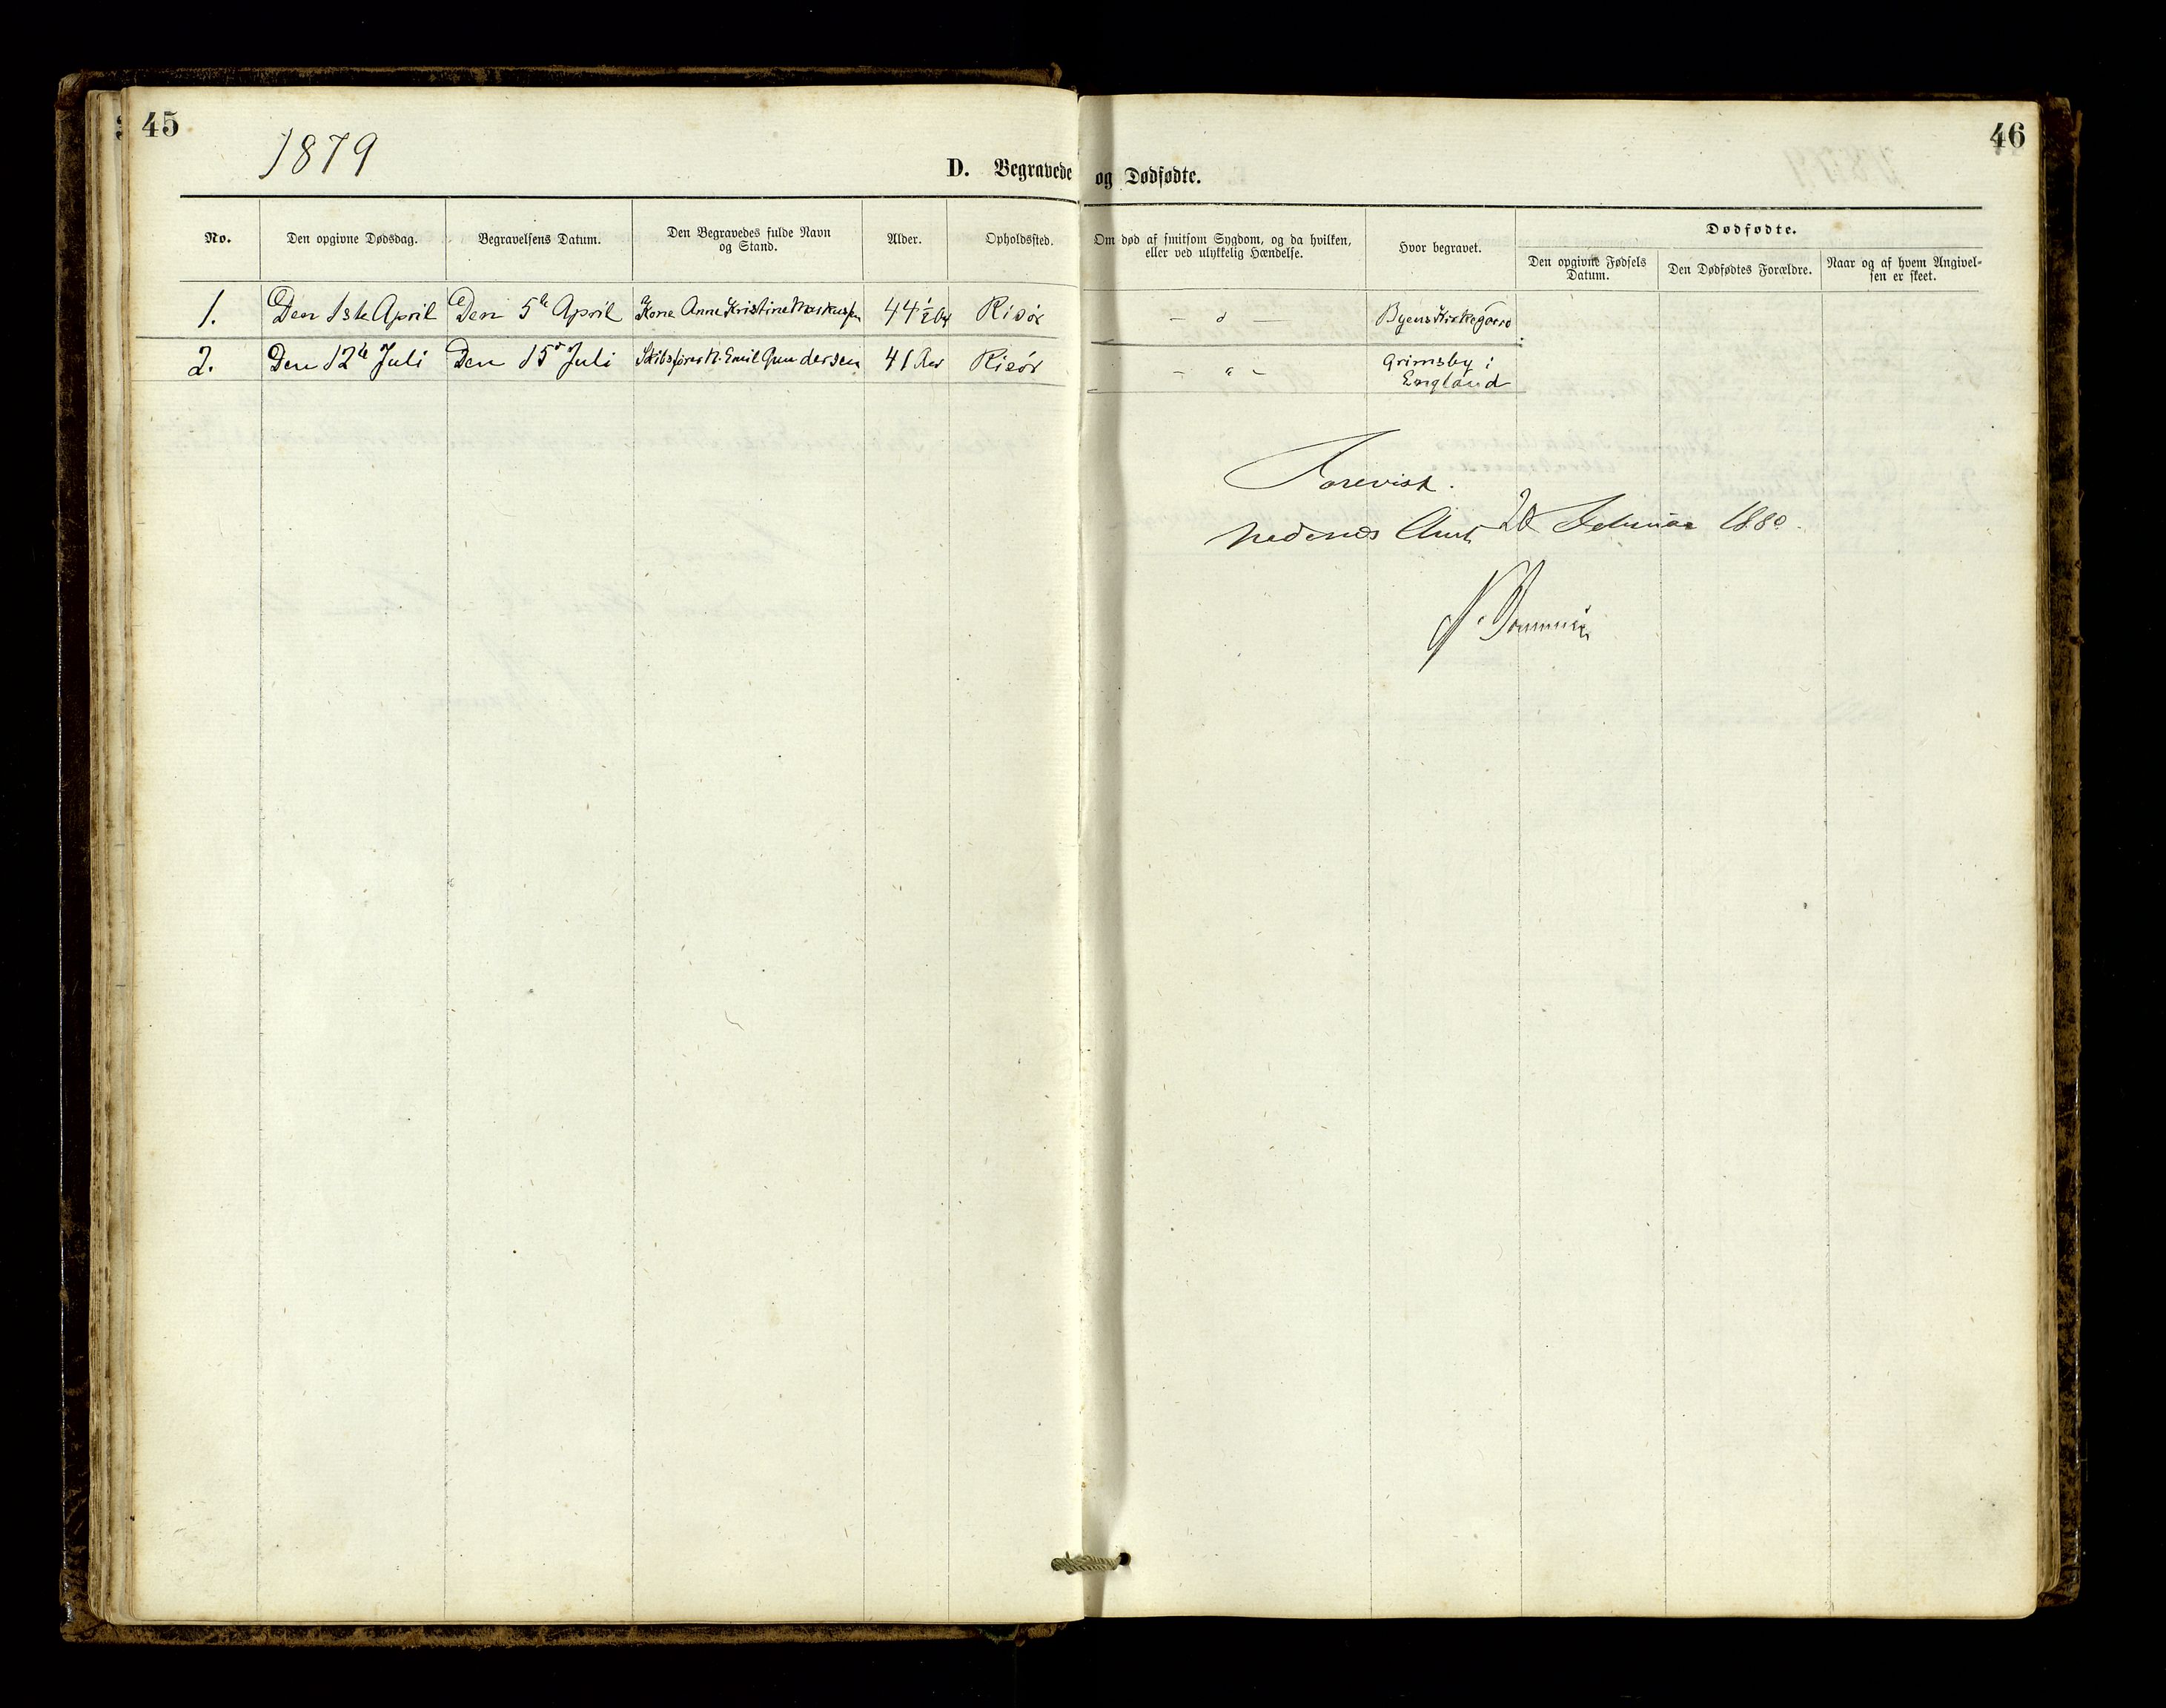 45
46
1879
D. Begravede og Dødfødte.
No.
Den opgivne Dødsdag.
Begravelsens Datum.
Den Begravedes fulde Navn
og Stand.
Alder.
Opholdssted.
Om død af smitsom Sygdom, og da hvilken,
eller ved ulykkelig Hændelse.
Hvor begravet.
Dødfødte.
Den opgivne Fødsels
Datum.
Den Dødfødtes Forældre.
Naar og af hvem Angivel-
sen er skeet.
1. Den 1ste April Den 5te April Kone Anne Kristine 44 1/2 Risør Byens Kirkegård
2. Den 12te Juli Den 15 Juli Skibsfører N. Emil Gundersen 41 Aar Risør Grimsby i
England
Forevist.
Nedenes Amt 20 Februar 1880.